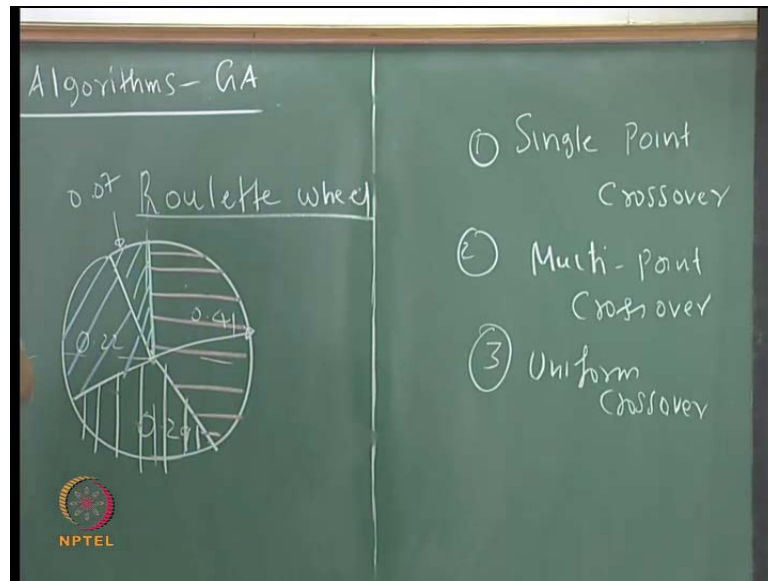 Algorithms - GA
0.07 Roulette wheel
0.41
0.22
0.29
① Single Point
Crossover
② Multi-Point
Crossover
③ Uniform
Crossover
NPTEL